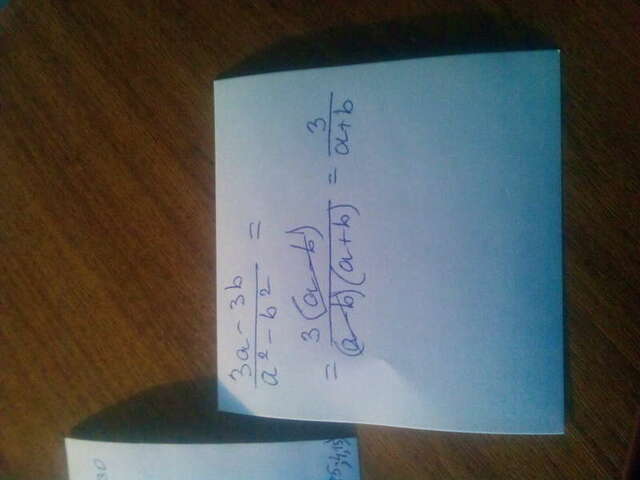 (3a - 3b)/(a² - b²) =
= 3(a - b)/((a - b)(a + b)) = 3/(a + b)